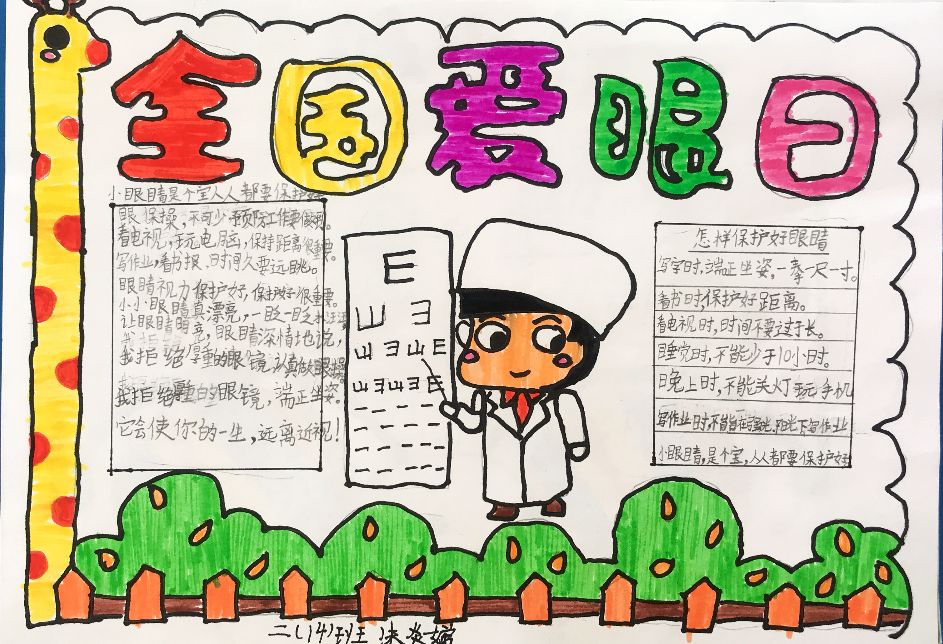 全国爱眼日
小眼睛是个宝人人都要保护好
眼保操,不可少,预防工作要做到。
看电视,玩电脑,保持距离很重要。
写作业,看书报,时间久要远眺。
眼睛视力保护好,保护好很重要。
小小眼睛真漂亮,一眨一眨
让眼睛明亮,眼睛深情地说,
我拒绝厚重的眼镜,认真做眼操
我拒绝重的眼镜,端正坐姿。
它会使你的一生,远离近视!
E
山 ヨ
山 ヨ 山 E
山 ヨ 山 ヨ E
怎样保护好眼睛
写字时,端正坐姿,一拳一尺一寸。
看书时,保护好距离。
看电视时,时间不要过于长。
睡觉时,不能少于10小时。
晚上时,不能关灯玩手机
写作业时,不能在强光,阳光下写作业
小眼睛,是个宝,人人都要保护好
二(14)班